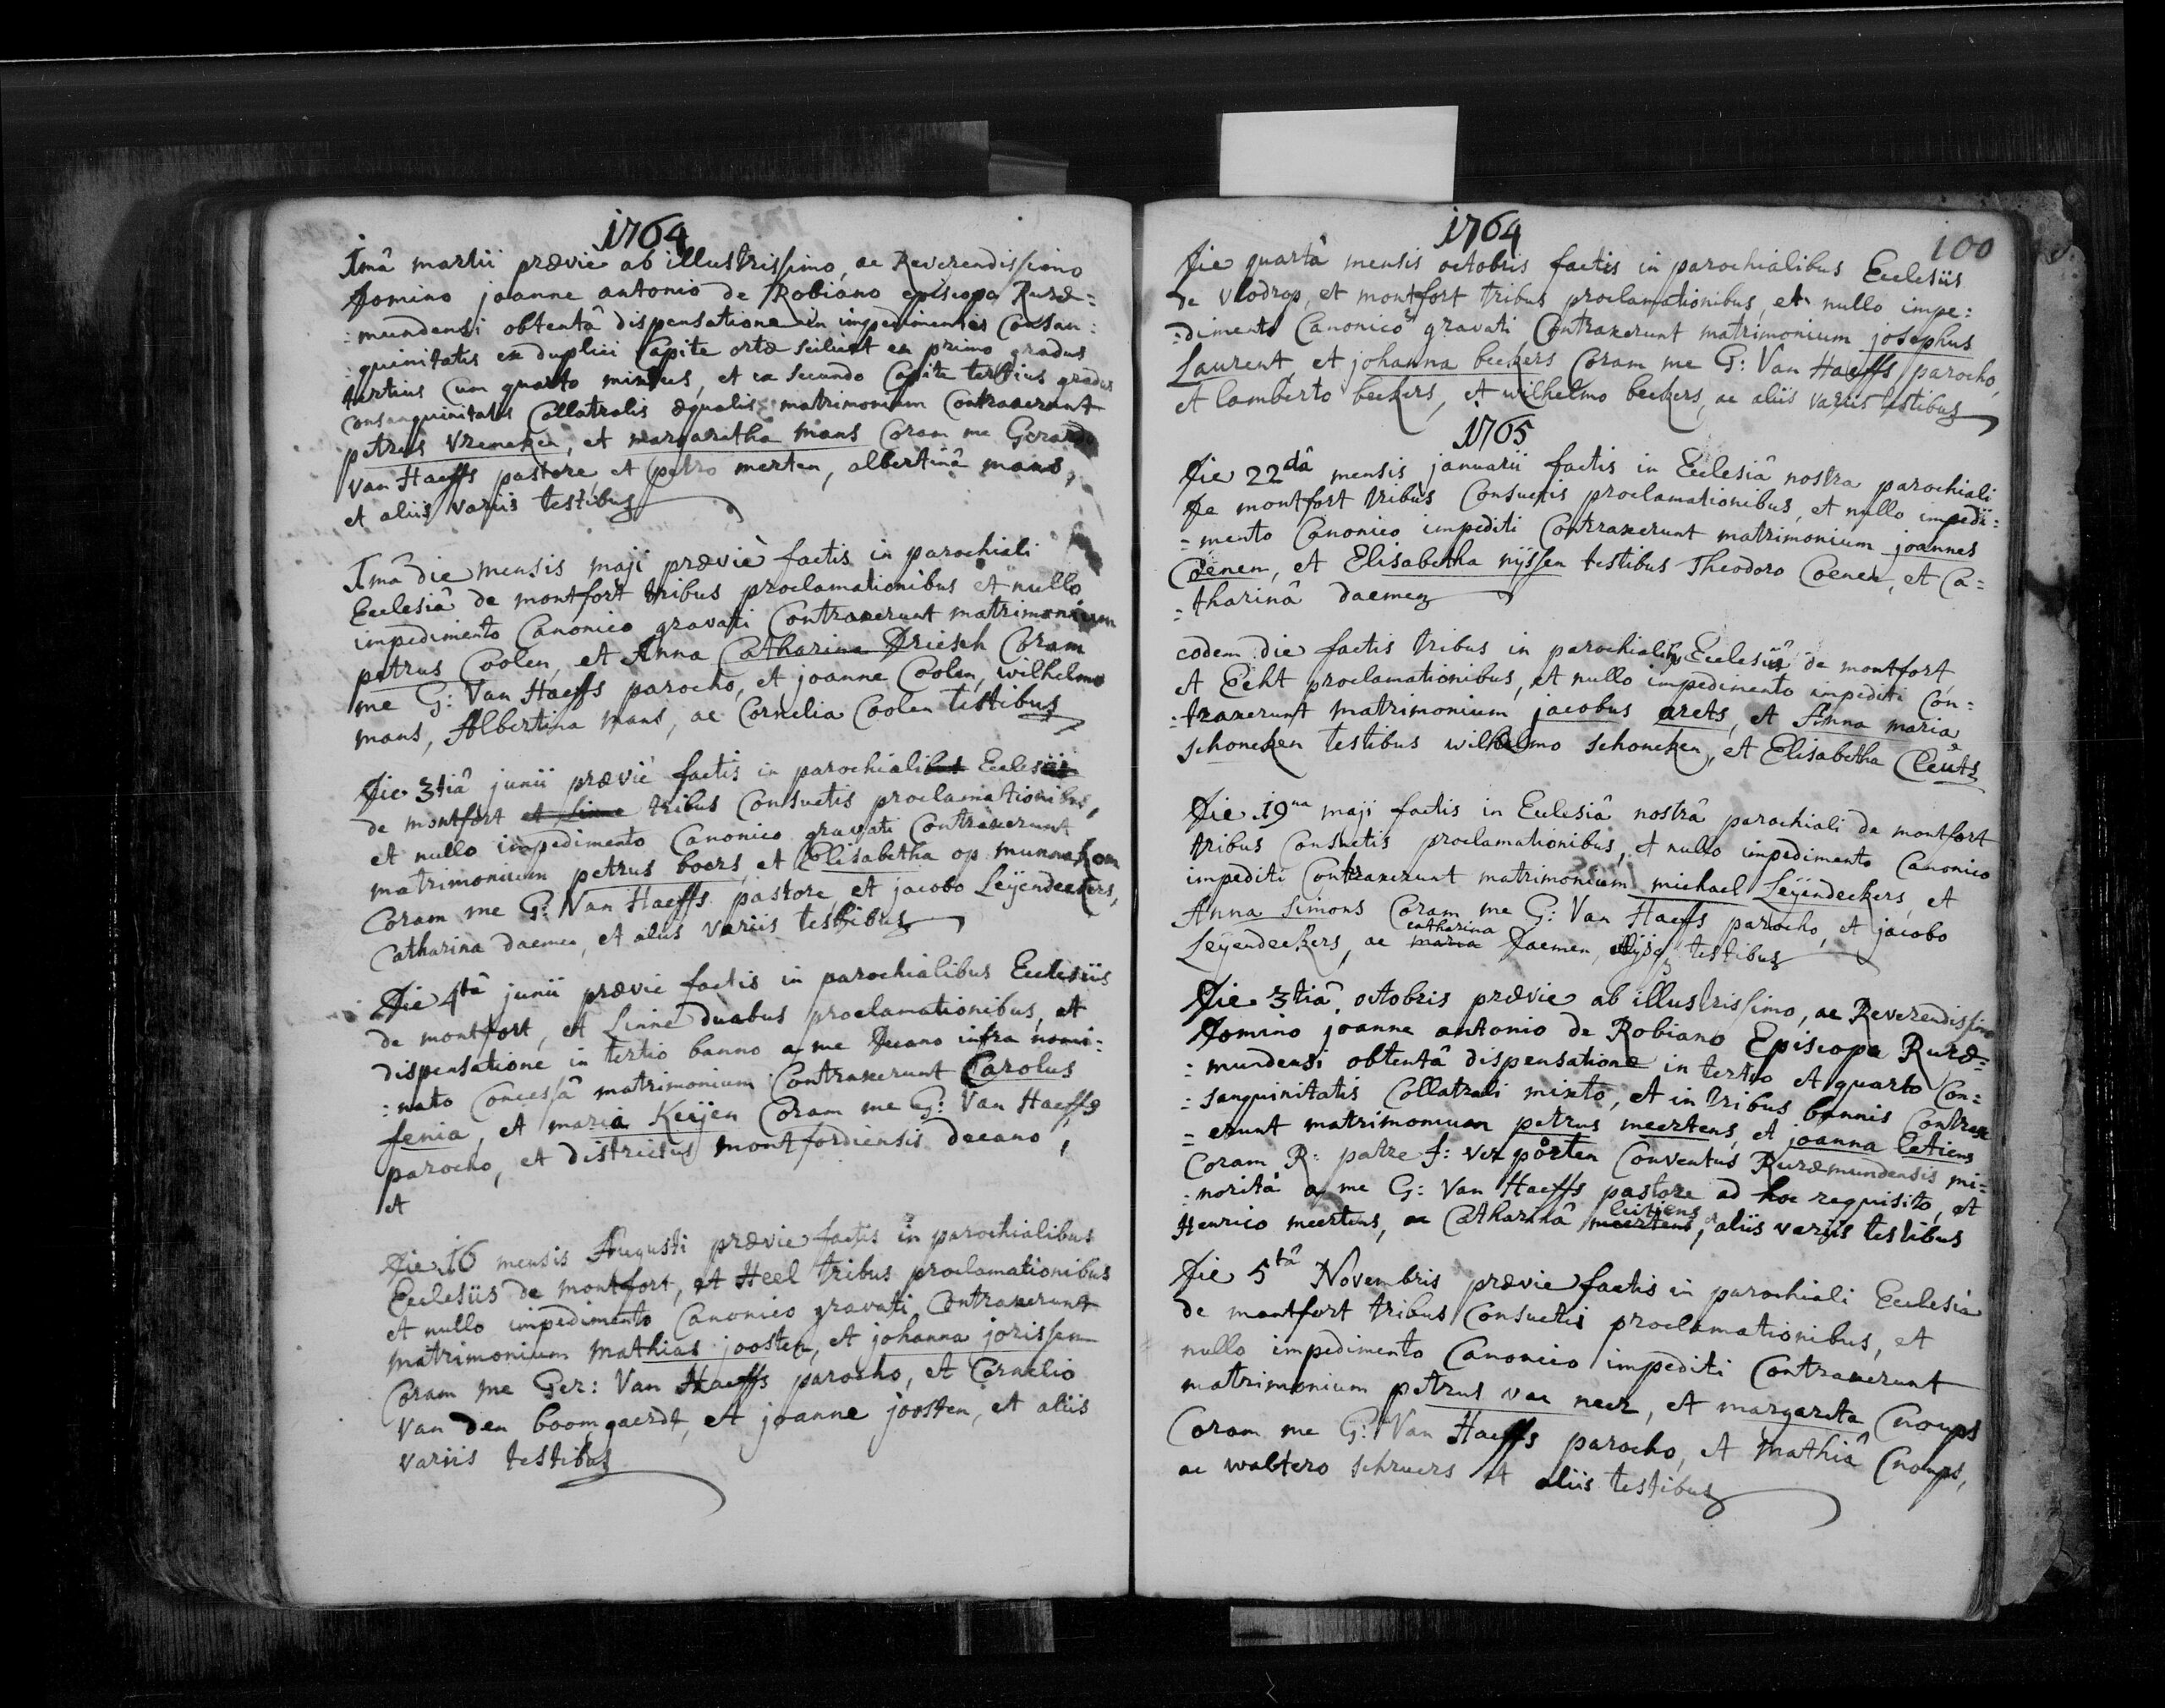 1764
1mâ martii prævie ab illustrissimo, ac Reverendissimo
Domino joanne antonio de Robiano episcopo Ruræ=
=mundensi obtentâ dispensatione in impedimentis Consan=
=guinitatis ex duplici Capite ortæ scilicet ex primo gradus
tertius cum quarto mixtus, et ex secundo Capite tertius gradus
Consanguinitatis Collatralis æqualis matrimonium Contraxerunt
petrus Vremeken, et margaretha mans Coram me Gerardo
van Haeffs pastore, et petro merten, albertinâ mans,
et aliis variis testibus
1mâ die mensis maji prævie factis in parochiali
Ecclesiâ de montfort tribus proclamationibus et nullo
impedimento Canonico gravati Contraxerunt matrimonium
petrus Coolen, et Anna Catharina Driesch Coram
me G: Van Haeffs parocho, et joanne Coolen, wilhelmo
mans, Albertina mans, ac Cornelia Coolen testibus
Die 3tiâ junii prævie factis in parochialibus Ecclesiis
de montfort et linne tribus Consuetis proclamationibus,
et nullo impedimento Canonico gravati Contraxerunt
matrimonium petrus boers, et Elisabetha op munnekom
Coram me G: Van Haeffs pastore, et jacobo Leÿendeckers,
Catharina daemen, et aliis variis testibus
Die 4tâ junii prævie factis in parochialibus Ecclesiis
de montfort, et Linne duabus proclamationibus, et
dispensatione in tertio banno a me Decano infra nomi=
=nato Concessâ matrimonium Contraxerunt Carolus
fenia, et maria Keijen Coram me G: Van Haeffs
parocho, et districtus montfordiensis decano,
et
Die 16 mensis Augusti prævie factis in parochialibus
Ecclesiis de montfort, et Heel tribus proclamationibus
et nullo impedimento Canonico gravati Contraxerunt
matrimonium mathias joosten, et johanna jorissen
Coram me Ger: Van Haeffs parocho, et Cornelio
Van den boomgaerdt, et joanne joosten, et aliis
variis testibus
1764
100
Die quartâ mensis octobris factis in parochialibus Ecclesiis
de vlodrop, et montfort tribus proclamationibus, et nullo impe=
=dimento Canonico gravati Contraxerunt matrimonium josephus
Laurent, et johanna beckers Coram me G: Van Haeffs parocho,
et lamberto beckers, et wilhelmo beckers, ac aliis variis testibus
1765
Die 22dâ mensis januarii factis in Ecclesiâ nostra parochiali
de montfort tribus Consuetis proclamationibus, et nullo impedi=
=mento Canonico impediti Contraxerunt matrimonium joannes
Coenen, et Elisabetha nijssen testibus Theodoro Coenen, et Ca=
=tharinâ daemen
eodem die factis tribus in parochialibus Ecclesiis de montfort
et Echt proclamationibus, et nullo impedimento impediti Con=
=traxerunt matrimonium jacobus arets, et Anna maria
schoncken testibus wilhelmo schoncken, et Elisabetha Cleuts
Die 19na maji factis in Ecclesiâ nostrâ parochiali de montfort
tribus Consuetis proclamationibus, et nullo impedimento Canonico
impediti Contraxerunt matrimonium michael Leÿendeckers, et
Anna simons Coram me G: Van Haeffs parocho, et jacobo
Leÿendeckers, ac maria catharina Daemen, testibus
Die 3tiâ octobris prævie ab illustrissimo, ac Reverendissimo
Domino joanne antonio de Robiano Episcopo Ruræ=
=mundensi obtentâ dispensatione in tertio et quarto Con=
=sanguinitatis Collatrali mixto, et in tribus bannis Contrax
=erunt matrimonium petrus meertens, et joanna Cetiens
Coram R: patre f: ver porten Conventus Ruræmundensis mi=
=noritâ a me G: Van Haeffs pastore ad hoc requisito, et
Henrico meertens, ac Catharinâ meertens ceitjens, et aliis variis testibus
Die 5tâ Novembris prævie factis in parochiali Ecclesiâ
de montfort tribus Consuetis proclamationibus, et
nullo impedimento Canonico impediti Contraxerunt
matrimonium petrus van neer, et margareta Cnoups
Coram me G: Van Haeffs parocho, et mathiâ Cnoups,
ac waltero schruers et aliis testibus